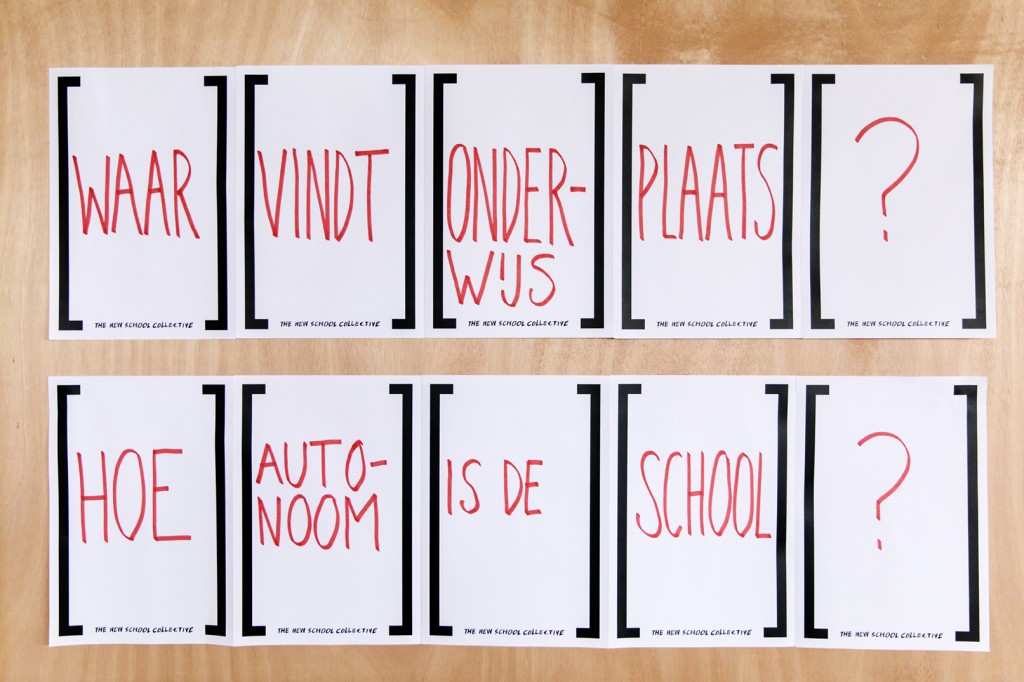 WAAR VINDT ONDER- PLAATS ?
WIJS
THE NEW SCHOOL COLLECTIVE THE NEW SCHOOL COLLECTIVE THE NEW SCHOOL COLLECTIVE THE NEW SCHOOL COLLECTIVE THE NEW SCHOOL COLLECTIVE
HOE AUTO- IS DE SCHOOL ?
NOOM
THE NEW SCHOOL COLLECTIVE THE NEW SCHOOL COLLECTIVE THE NEW SCHOOL COLLECTIVE THE NEW SCHOOL COLLECTIVE THE NEW SCHOOL COLLECTIVE